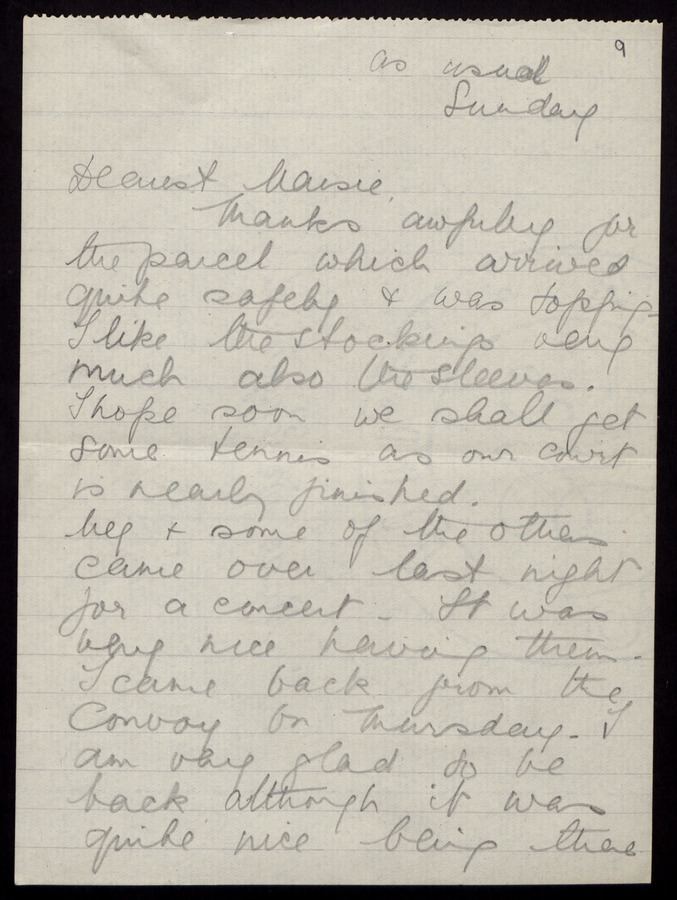 9
as usual
Sunday
Dearest Maisie,
Thanks awfully for
the parcel which arrived
quite safely & was topping -
I like the stockings very
much also the sleeves.
I hope soon we shall get
some tennis as our court
is nearly finished.
Meg & some of the others
came over last night
for a concert - It was
very nice having them -
I came back from the
Convoy on Thursday - I
am very glad to be
back although it was
quite nice being there